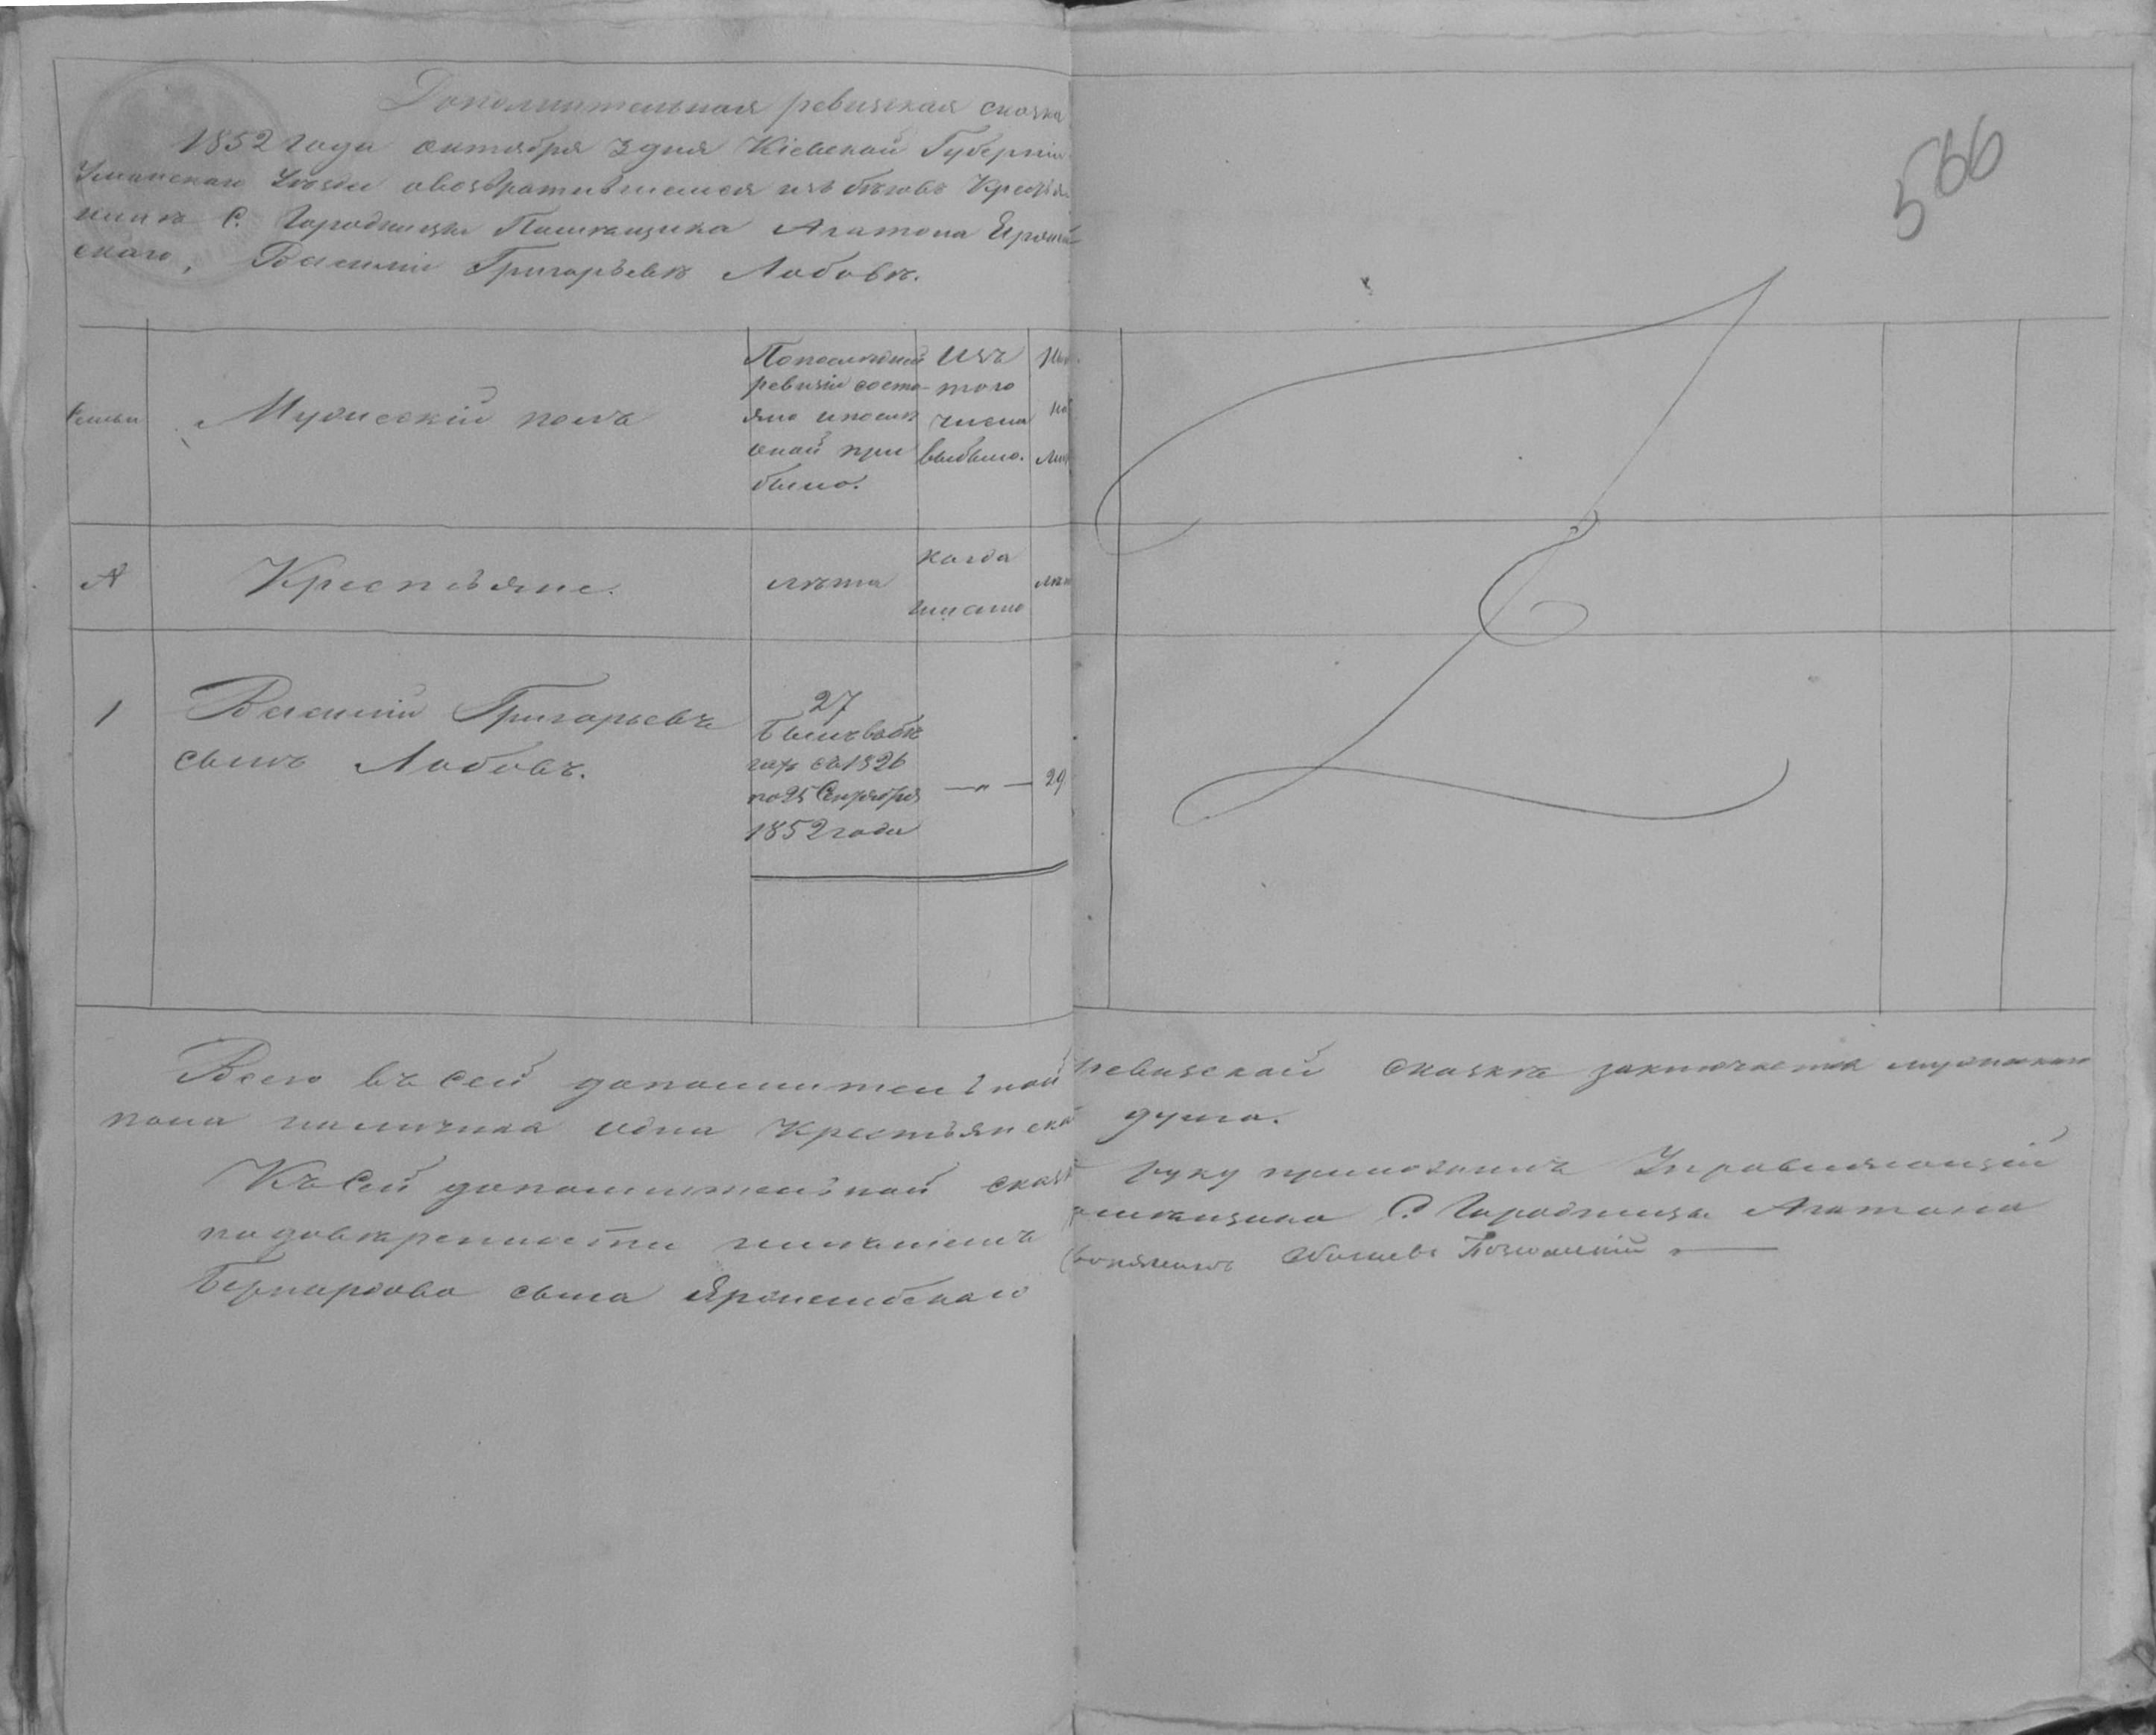 Дополнительная ревизская сказка
566
1852 года октября 3 дня Кіевской Губерніи
Уманскаго Уѣзда о возвратившемся изъ бѣговъ Крестья
нинѣ С. Городницы Помѣщика Агатона Яроши
скаго, Василіи Григорьевѣ Лобовѣ.
Семьи
Мужескій полъ
По последней
ревизіи состо
яло и после
оной при
было.
Изъ
того
числа
выбыло.
№
Крестьяне.
лѣта
когда
именно
лѣт
1
Василій Григорьевъ
сынъ Лобовъ.
27
Былъ въ бѣ
гахъ съ 1826
по 25 Сентября
1852 года
— " —
29
Всего въ сей дополнительной ревизской сказкѣ заключается мужескаго
пола наличная одна Крестьянска душа.
Къ сей дополнительной сказк руку приложилъ Управляющій
по довѣренности имѣніемъ помѣщика С. Городницы Агатона
Бернардова сына Ярошинскаго